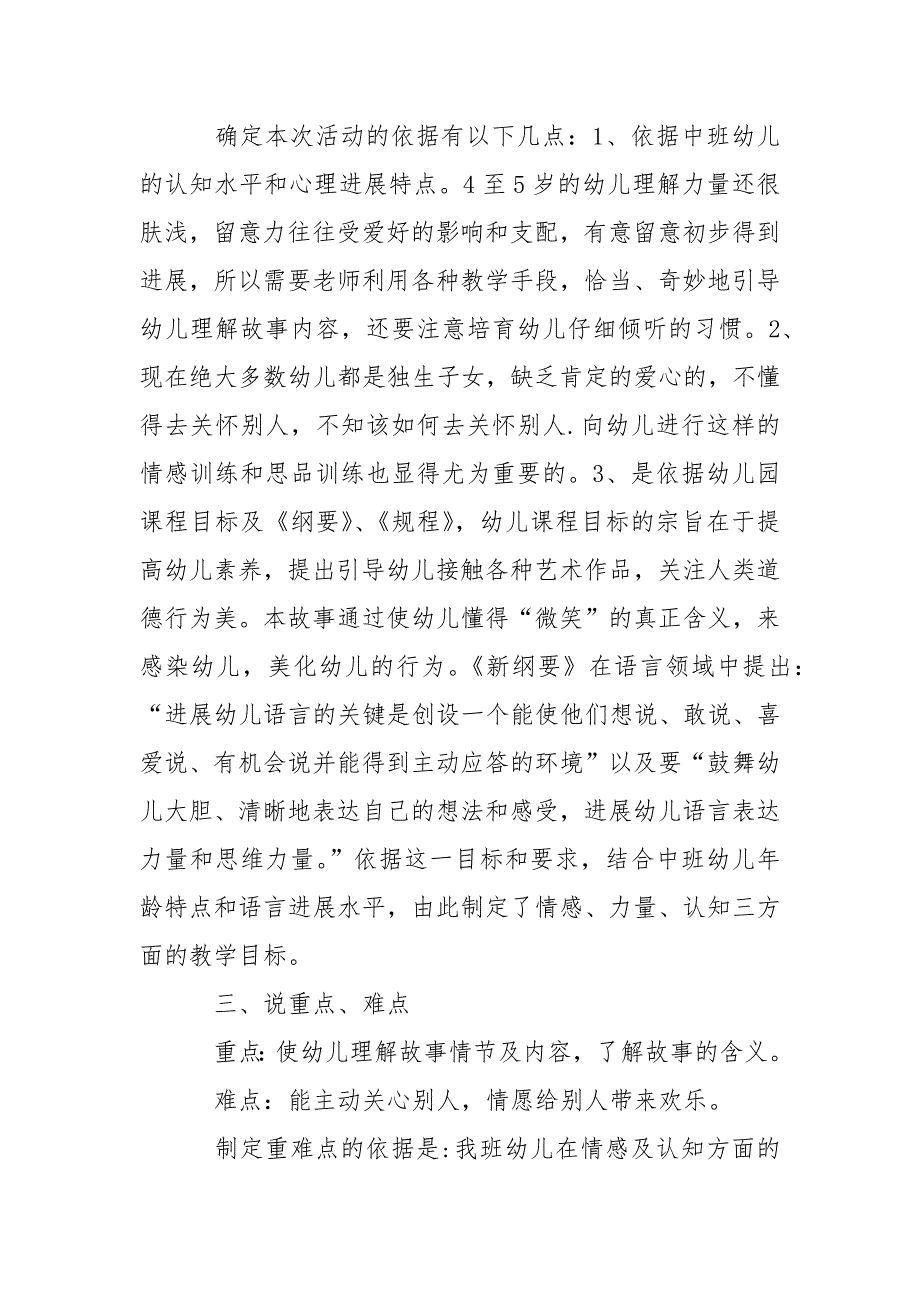 确定本次活动的依据有以下几点：1、依据中班幼儿
的认知水平和心理进展特点。4 至 5 岁的幼儿理解力量还很
肤浅，留意力往往受爱好的影响和支配，有意留意初步得到
进展，所以需要老师利用各种教学手段，恰当、奇妙地引导
幼儿理解故事内容，还要注意培育幼儿仔细倾听的习惯。2、
现在绝大多数幼儿都是独生子女，缺乏肯定的爱心的，不懂
得去关怀别人，不知该如何去关怀别人.向幼儿进行这样的
情感训练和思品训练也显得尤为重要的。3、是依据幼儿园
课程目标及《纲要》、《规程》，幼儿课程目标的宗旨在于提
高幼儿素养，提出引导幼儿接触各种艺术作品，关注人类道
德行为美。本故事通过使幼儿懂得“微笑”的真正含义，来
感染幼儿，美化幼儿的行为。《新纲要》在语言领域中提出：
“进展幼儿语言的关键是创设一个能使他们想说、敢说、喜
爱说、有机会说并能得到主动应答的环境”以及要“鼓舞幼
儿大胆、清晰地表达自己的想法和感受，进展幼儿语言表达
力量和思维力量。”依据这一目标和要求，结合中班幼儿年
龄特点和语言进展水平，由此制定了情感、力量、认知三方
面的教学目标。
三、说重点、难点
重点：使幼儿理解故事情节及内容，了解故事的含义。
难点：能主动关心别人，情愿给别人带来欢乐。
制定重难点的依据是:我班幼儿在情感及认知方面的